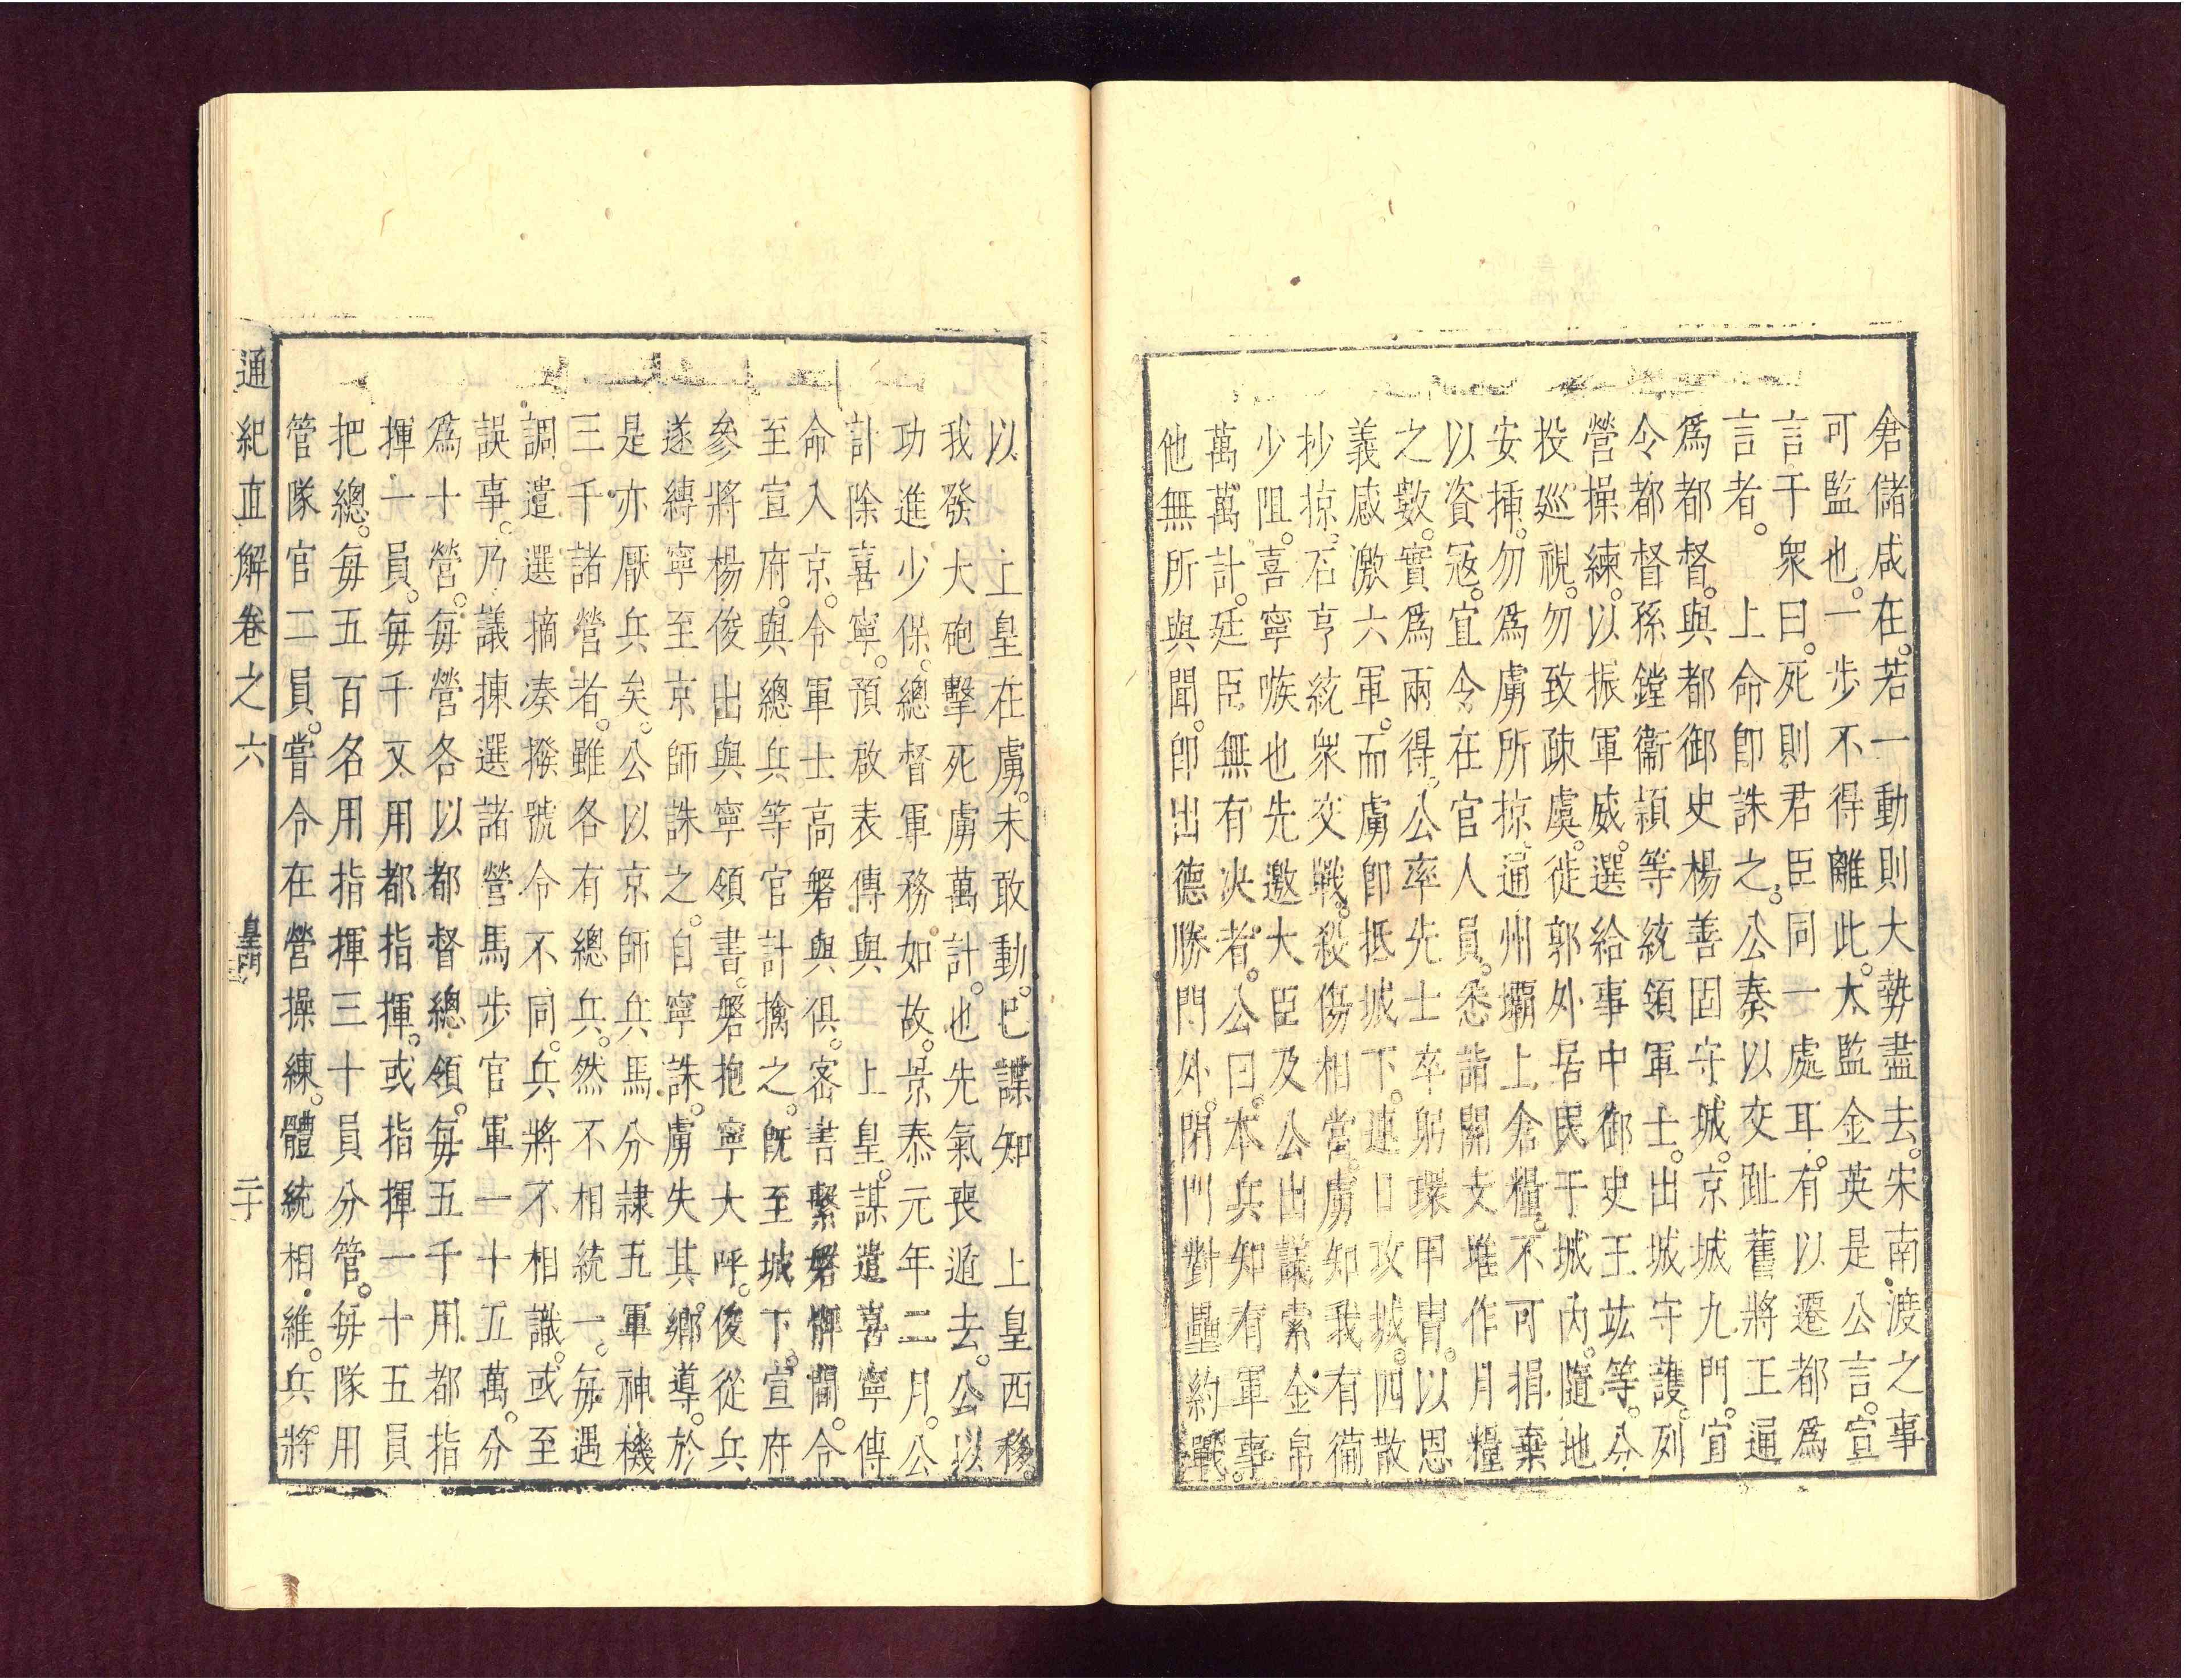 倉儲咸在。若一動則大勢盡去。宋南渡之事
可監也。一步不得離此。太監金英是公言。宣
言于衆曰。死則君臣同一處耳。有以遷都爲
言者。 上命即誅之。公奏以交趾舊將王通
爲都督。與都御史楊善固守城。京城九門。宜
令都督孫鏜衞頴等統領軍士。出城守護。列
營操練。以振軍威。選給事中御史王竑等。分
投廵視。勿致疎虞。徙郭外居民于城內。隨地
安揷。勿爲虜所掠。通州壩上倉糧。不可捐棄
以資冦。宜令在官人員。悉詣關支准作月糧
之數。實爲兩得。公率先士卒。躬環甲冑。以恩
義感激六軍。而虜即抵城下。連日攻城。四散
抄掠。石亨統衆交戰。殺傷相當。虜知我有備
少阻。喜寧嗾也先邀大臣及公出議索金帛
萬萬計。廷臣無有决者。公曰。本兵知有軍事
他無所與聞。即出德勝門外。閉門對壘約戰。
以 上皇在虜。未敢動。已諜知 上皇西移。
我發大砲擊死虜萬計。也先氣喪遁去。公以
功進少保。總督軍務如故。景泰元年二月。公
計除喜寧。預啟表傳與 上皇。謀遣喜寧傳
命入京。令軍士高磐與俱。密書繫磐髀間。令
至宣府。與總兵等官計擒之。旣至城下。宣府
參將楊俊出與寧領書。磐抱寧大呼。俊從兵
遂縛寧至京師誅之。自寧誅。虜失其鄉導。於
是亦厭兵矣。公以京師兵馬分隷五軍神機
三千諸營者。雖各有總兵。然不相統一。每遇
調遣選摘湊撥號令不同。兵將不相識。或至
誤事。乃議揀選諸營馬步官軍一十五萬。分
爲十營。每營各以都督總領。每五千用都指
揮一員。每千又用都指揮。或指揮一十五員
把總。每五百名用指揮三十員分管。每隊用
管隊官二員。嘗令在營操練。體統相維。兵將
通紀直解卷之六 皇明 二十